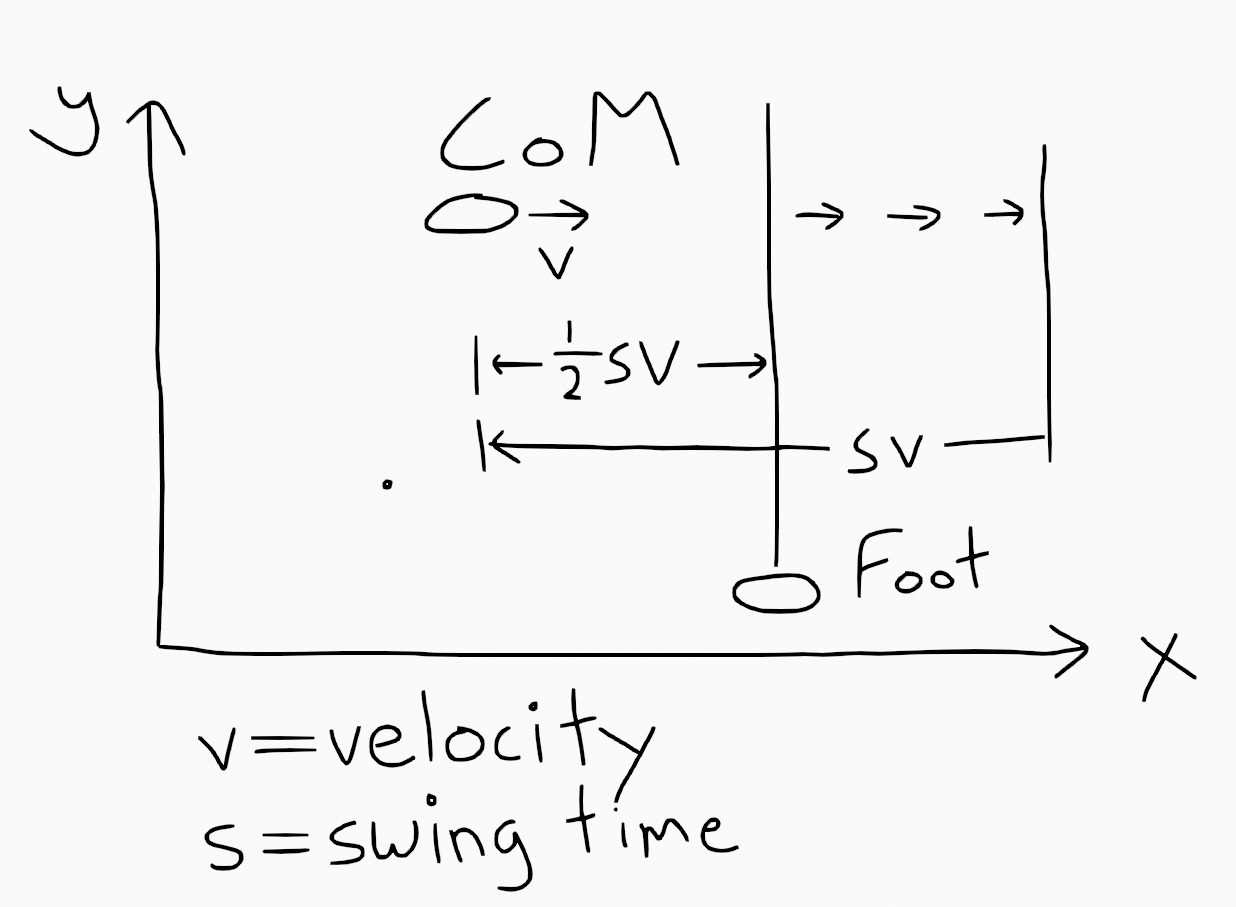 y
CoM
v
½sv
sv
Foot
x
v=velocity
s=swing time